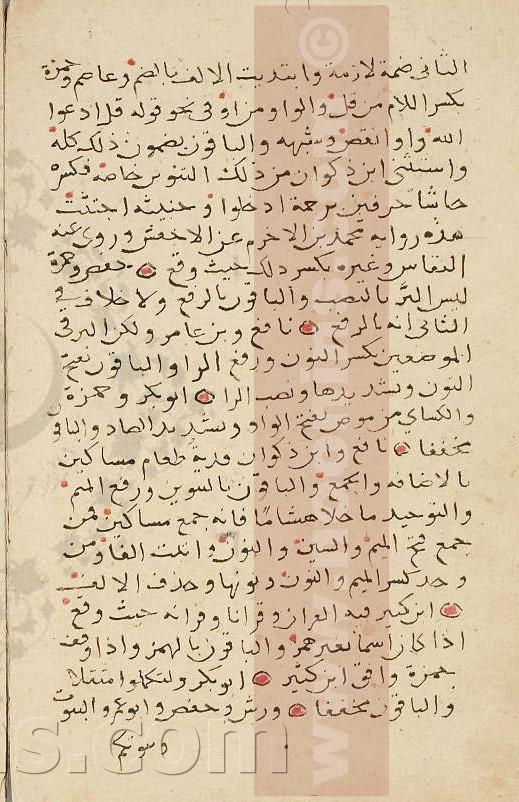 الثانى ضمة لازمة وابتديت الالف بالضم وعاصم وحمزة
بكسر اللام من قل والواو من او فى نحو قوله قل ادعوا
الله واو انقص وشبهه والباقون يضمون ذلك كله
واستثنى ابن ذكوان من ذلك التنوين خاصة فكسره
حاشا حرفين برحمة ادخلوا وخبيثه اجتثت
هذه رواية محمد بن الاخرم عن الاخفش وروى عنه
النقاس وغيره بكسر ذلك حيث وقع حفص وحمزة
ليس البَّر بالنصب والباقون بالرفع ولا خلاف فى
الثانى انه بالرفع نافع وبن عامر ولكن البر فى
الموضعين بكسر النون ورفع الرا والباقون بفتح
النون وتشديدها ونصب الرا ابوبكر وحمزة
والكساي من موص بفتح الواو وتشديد الصاد والباقون
مخففا نافع وابن ذكوان فدية طعام مساكين
بالاضافه والجمع والباقون بالتنوين ورفع الميم
والتوحيد ما خلا هشامًا فانه جمع مساكين فمن
جمع فتح الميم والسين والنون واثبت الفا ومن
وحد كسر الميم والنون ونونها وحذف الالف
ابن كثير فيه القران وقرانا وقرانه حيث وقع
اذا كان اسما بغير همز والباقون بالهمز واذا وقف
حمزة وافق ابن كثير ابوبكر ولتكملوا مثقلا
والباقون مخففا ورش وحفص وابوعمرو البيوت
s.com